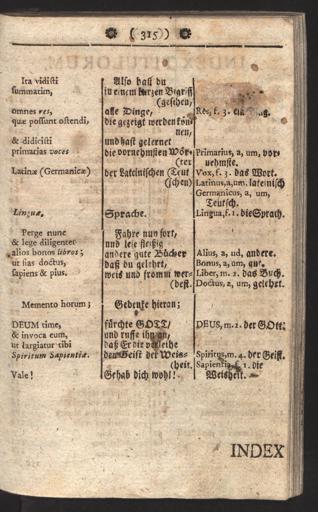 ( 315 )
Ita vidisti
summatim,
omnes res,
quæ possunt ostendi,
& didicisti
primarias voces
Latinæ (Germanicæ)
Linguæ.
Perge nunc
& lege diligenter
alios bonos libros;
ut fias doctus,
sapiens & pius.
Memento horum;
DEUM time,
& invoca eum,
ut largiatur tibi
Spiritum Sapientiæ.
Vale!
Also hast du
in einem kurzen Begriff
(gesehen,
alle Dinge,
die gezeigt werden kön-
nen,
und hast gelernet
die vornehmsten Wör-
(ter
der Lateinischen (Teut
schen)
Sprache.
Fahre nun fort,
und lese fleißig
andere gute Bücher
daß du gelehrt,
weis und fromm wer-
(dest.
Gedenke hieran;
fürchte GOTT/
und ruffe ihn an,
daß Er dir verleihe
den Geist der Weis-
(heit.
Gehab dich wohl!
Res, f. 5. ein Ding.
Primarius, a, um, vor-
nehmste.
Vox, f. 3. das Wort.
Latinus, a, um. lateinisch
Germanicus, a, um,
Teutsch.
Lingua, f. 1. die Sprach.
Alius, a, ud, andere.
Bonus, a, um, gut.
Liber, m. 2. das Buch.
Doctus, a, um, gelehrt.
DEUS, m. 2. der GOtt.
Spiritus, m. 4. der Geist.
Sapientia, f. 1. die
Weisheit.
INDEX